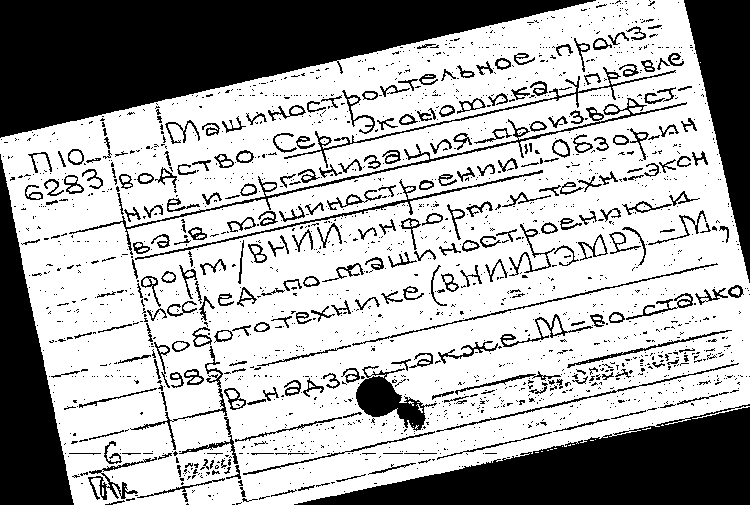 П10
6283
Машиностроительное произ=
водство. Сер., Экономика, управле
ние и организация производст-
ва в машиностроении": Обзор. ин
форм. / ВНИИ информ. и техн.-экон
исслед. по машиностроению и
робототехнике (ВНИИТЭМР) - М.,
1985-
В надзаг. также: М-во станко
См. след. карт.
6